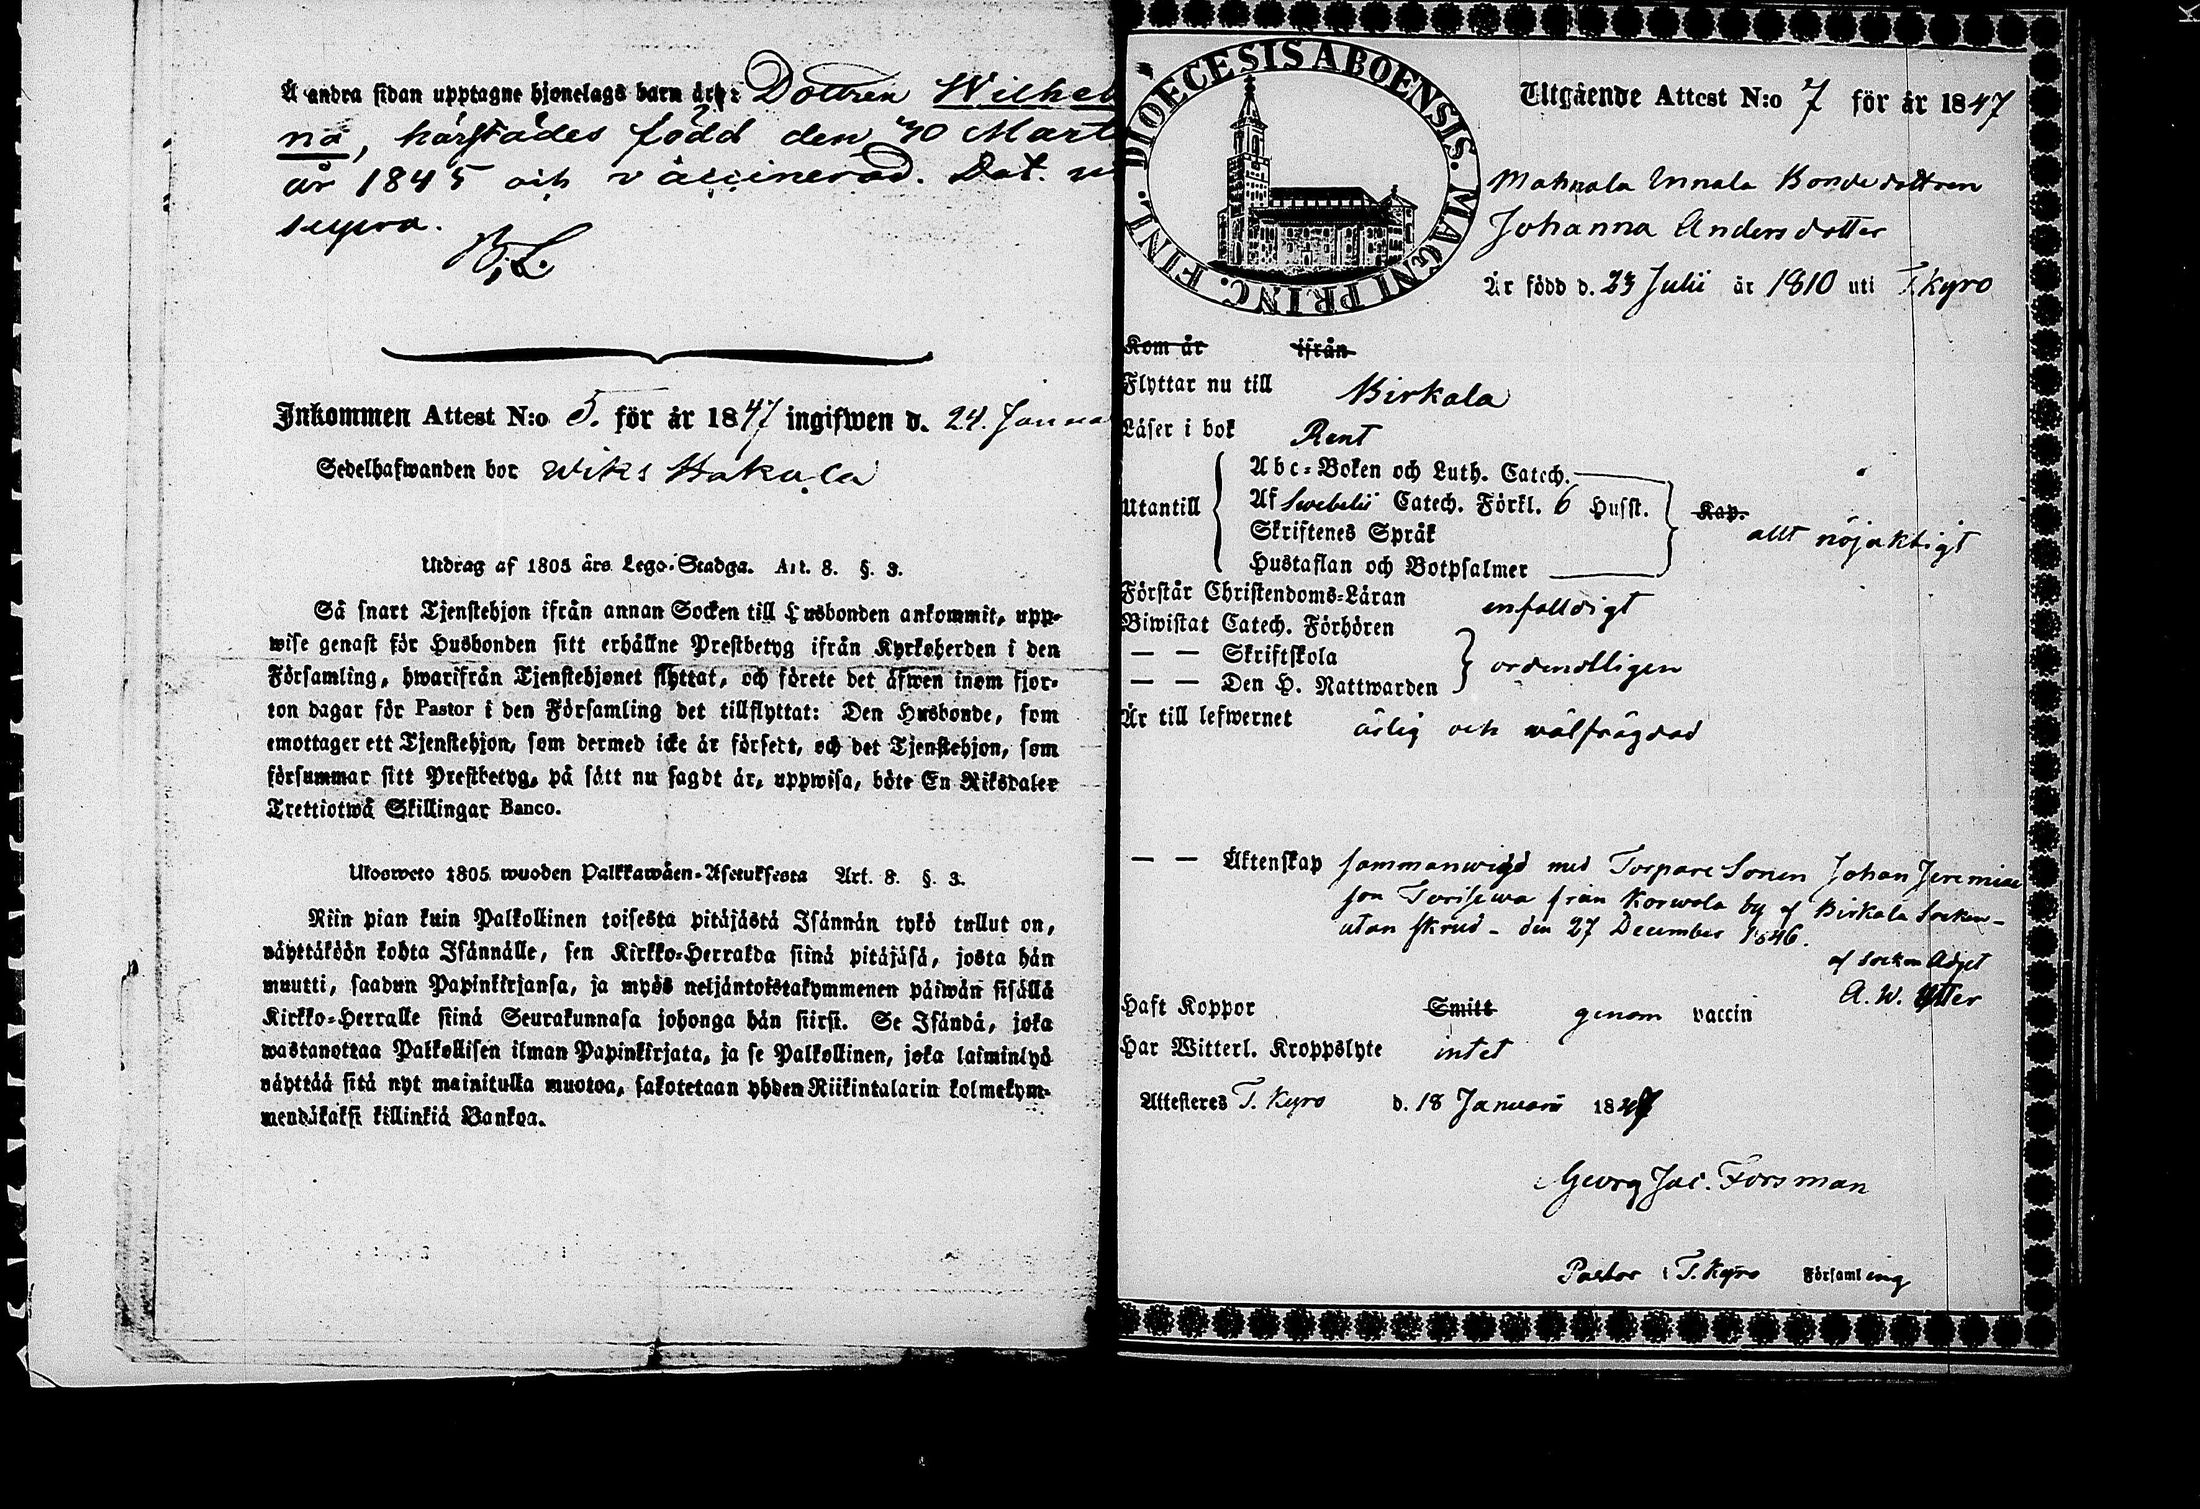 Å andra sidan upptagne hjonelags barn är: Dottren Wilhel
na, härstädes född den 30 Marti
år 1845 och vaccinerad. Dat. ut
supra.
B. L.
Inkommen Attest N:o 5. för år 1847 ingifwen d. 24. Janua
Sedelhafwanden bor Wiks Hakala
Utdrag af 1805 års Lego-Stadga. Art. 8. §. 3.
Så snart Tjenstehjon ifrån annan Socken till Husbonden ankommit, upp-
wise genast för Husbonden sitt erhållne Prestbetyg ifrån Kyrkoherden i den
Församling, hwarifrån Tjenstehjonet flyttat, och förete det äfwen inom fjor-
ton dagar för Pastor i den Församling det tillflyttat: Den Husbonde, som
emottager ett Tjenstehjon, som dermed icke är försedt, och det Tjenstehjon, som
försummar sitt Prestbetyg, på sätt nu sagdt är, uppwisa, böte En Riksdaler
Trettiotwå Skillingar Banco.
Ulosweto 1805 wuoden Palkkawäen-Asetuksesta Art. 8. §. 3.
Niin pian kuin Palkollinen toisesta pitäjästä Isännän tykö tullut on,
näyttäköön kohta Isännälle, sen Kirkko-Herralda siinä pitäjäsä, josta hän
muutti, saadun Papinkirjansa, ja myös neljäntoistakymmenen päiwän sisällä
Kirkko-Herralle siinä Seurakunnasa johonga hän siirsi. Se Isändä, joka
wastanottaa Palkollisen ilman Papinkirjata, ja se Palkollinen, joka laiminlyö
näyttää sitä nyt mainitulla muotoa, sakotetaan yhden Riikintalarin kolmekym-
mendäkaksi killinkiä Bankoa.
DIOECESIS ABOENSIS. MAGNI PRINC. FINL.
Utgående Attest N:o 7 för år 1847
Mahnala Innala Bondedottren
Johanna Andersdotter
Är född d. 23 Julii år 1810 uti T.Kyro
Kom år ifrån
Flyttar nu till Birkala
Läser i bok Rent
Utantill
Abc-Boken och Luth. Catech.
Af Swebelii Catech. Förkl. 6 Husst. Kap.
Skriftenes Språk
allt nöjaktigt
Hustaflan och Botpsalmer
Förstår Christendoms-Läran enfaldigt
Biwistat Catech. Förhören
— — Skriftskola
— — Den H. Nattwarden ordendtligen
Är till lefwernet ärlig och wälfrägdad
— — Äktenskap sammanwigd med Torpare Sonen Johan Jeremias
son Torisewa från Korwola by af Birkala Socken –
utan skrud – den 27 December 1846.
af Socken Adjct
A. W. Ytter
Haft Koppor Smitt genom vaccin
Har Witterl. Kroppslyte intet
Attesteres T. Kyro d. 18 Januarii 1847
Georg Jac. Forsman
Pastor i T. Kyro Församling